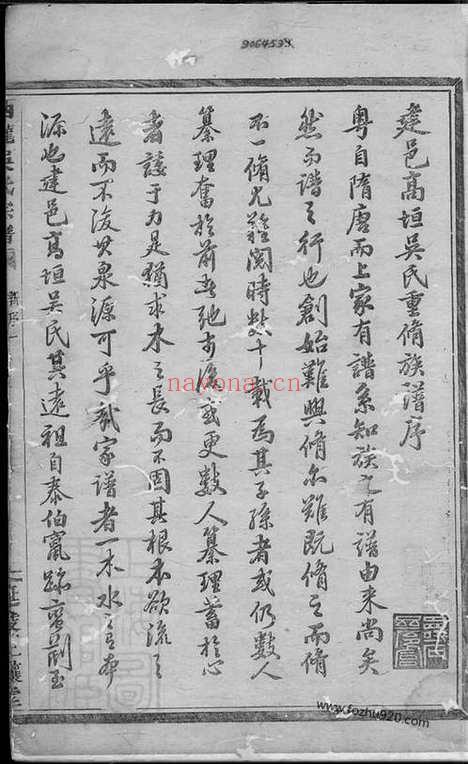 9064598
建邑高垣吳氏重脩族譜序
粵自隋唐而上家有譜系知族之有譜由來尚矣
然而譜之行也創始難興脩尓難既脩之而脩
不一脩尤難閱時數十載為其子孫者或仍數人
纂理奮於前者弛于後或更數人纂理蓄於心
者諉于力是猶求木之長而不固其根本欲流之
遠而不浚其泉源可乎哉家譜者一木水之本
源也建邑高垣吳氏其遠祖自泰伯竄跡蠻荊至
吳氏宗譜
nayona.cn
www.fozhu920.com